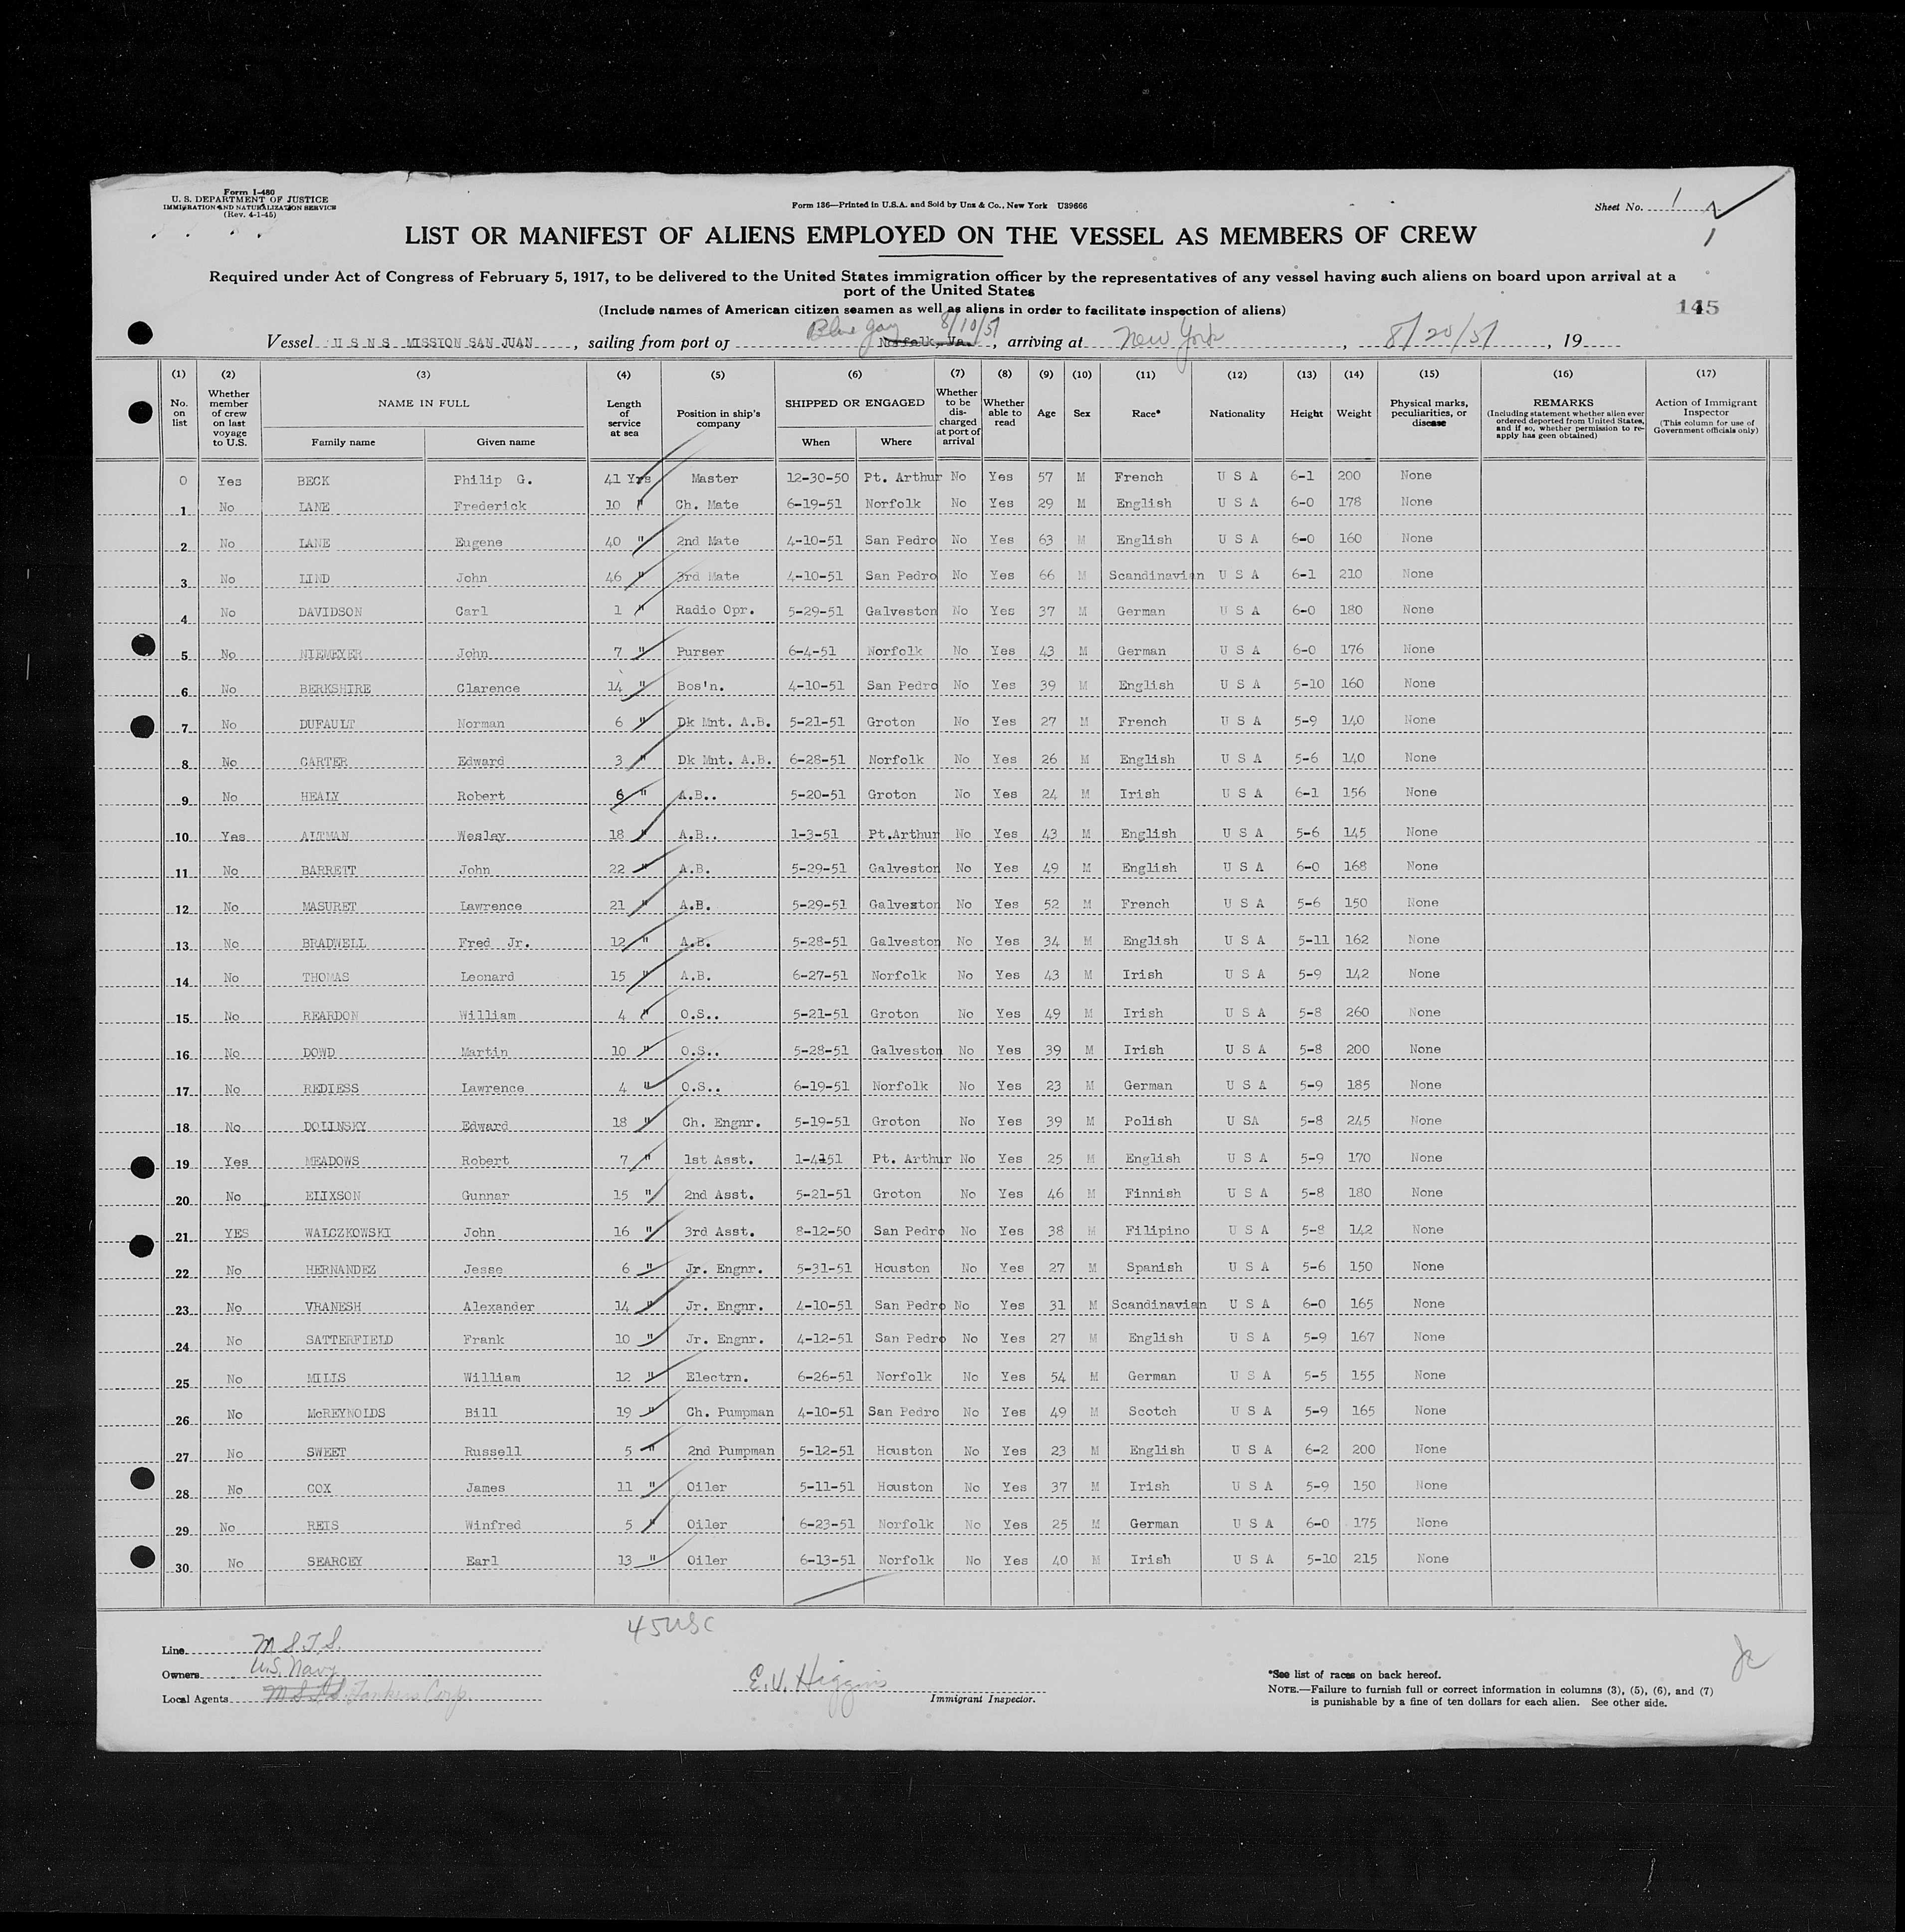 Form I-480
U. S. DEPARTMENT OF JUSTICE
IMMIGRATION AND NATURALIZATION SERVICE
(Rev. 4-1-45)
Form 136—Printed in U.S.A. and Sold by Unz & Co., New York U39666
Sheet No. 1
1
LIST OR MANIFEST OF ALIENS EMPLOYED ON THE VESSEL AS MEMBERS OF CREW
Required under Act of Congress of February 5, 1917, to be delivered to the United States immigration officer by the representatives of any vessel having such aliens on board upon arrival at a
port of the United States
(Include names of American citizen seamen as well as aliens in order to facilitate inspection of aliens)
145
Vessel U S N S MISSION SAN JUAN, sailing from port of Norfolk, Va. 8/10/51, arriving at New York, 8/20/51, 19
(1) No. on list (2) Whether member of crew on last voyage to U.S. (3) NAME IN FULL Family name Given name (4) Length of service at sea (5) Position in ship's company (6) SHIPPED OR ENGAGED When Where (7) Whether to be discharged at port of arrival (8) Whether able to read (9) Age (10) Sex (11) Race* (12) Nationality (13) Height (14) Weight (15) Physical marks, peculiarities, or disease (16) REMARKS (Including statement whether alien ever ordered deported from United States, and if so, whether permission to re-apply has geen obtained) (17) Action of Immigrant Inspector (This column for use of Government officials only)
0 Yes BECK Philip G. 41 Yrs Master 12-30-50 Pt. Arthur No Yes 57 M French U S A 6-1 200 None
1 No LANE Frederick 10 " Ch. Mate 6-19-51 Norfolk No Yes 29 M English U S A 6-0 178 None
2 No LANE Eugene 40 " 2nd Mate 4-10-51 San Pedro No Yes 63 M English U S A 6-0 160 None
3 No LIND John 46 " 3rd Mate 4-10-51 San Pedro No Yes 66 M Scandinavian U S A 6-1 210 None
4 No DAVIDSON Carl 1 " Radio Opr. 5-29-51 Galveston No Yes 37 M German U S A 6-0 180 None
5 No NIEMEYER John 7 " Purser 6-4-51 Norfolk No Yes 43 M German U S A 6-0 176 None
6 No BERKSHIRE Clarence 14 " Bos'n. 4-10-51 San Pedro No Yes 39 M English U S A 5-10 160 None
7 No DUFAULT Norman 6 " Dk Mnt. A.B. 5-21-51 Groton No Yes 27 M French U S A 5-9 140 None
8 No CARTER Edward 3 " Dk Mnt. A.B. 6-28-51 Norfolk No Yes 26 M English U S A 5-6 140 None
9 No HEALY Robert 6 " A.B.. 5-20-51 Groton No Yes 24 M Irish U S A 6-1 156 None
10 Yes AITMAN Wesley 18 " A.B.. 1-3-51 Pt.Arthur No Yes 43 M English U S A 5-6 145 None
11 No BARRETT John 22 " A.B. 5-29-51 Galveston No Yes 49 M English U S A 6-0 168 None
12 No MASURET Lawrence 21 " A.B. 5-29-51 Galveston No Yes 52 M French U S A 5-6 150 None
13 No BRADWELL Fred Jr. 12 " A.B. 5-28-51 Galveston No Yes 34 M English U S A 5-11 162 None
14 No THOMAS Leonard 15 " A.B. 6-27-51 Norfolk No Yes 43 M Irish U S A 5-9 142 None
15 No REARDON William 4 " O.S.. 5-21-51 Groton No Yes 49 M Irish U S A 5-8 260 None
16 No DOWD Martin 10 " O.S.. 5-28-51 Galveston No Yes 39 M Irish U S A 5-8 200 None
17 No REDIESS Lawrence 4 " O.S.. 6-19-51 Norfolk No Yes 23 M German U S A 5-9 185 None
18 No DOLINSKY Edward 18 " Ch. Engnr. 5-19-51 Groton No Yes 39 M Polish U SA 5-8 245 None
19 Yes MEADOWS Robert 7 " 1st Asst. 1-4-51 Pt. Arthur No Yes 25 M English U S A 5-9 170 None
20 No ELIXSON Gunnar 15 " 2nd Asst. 5-21-51 Groton No Yes 46 M Finnish U S A 5-8 180 None
21 YES WALCZKOWSKI John 16 " 3rd Asst. 8-12-50 San Pedro No Yes 38 M Filipino U S A 5-8 142 None
22 No HERNANDEZ Jesse 6 " Jr. Engnr. 5-31-51 Houston No Yes 27 M Spanish U S A 5-6 150 None
23 No VRANESH Alexander 14 " Jr. Engnr. 4-10-51 San Pedro No Yes 31 M Scandinavian U S A 6-0 165 None
24 No SATTERFIELD Frank 10 " Jr. Engnr. 4-12-51 San Pedro No Yes 27 M English U S A 5-9 167 None
25 No MILLS William 12 " Electrn. 6-26-51 Norfolk No Yes 54 M German U S A 5-5 155 None
26 No McREYNOLDS Bill 19 " Ch. Pumpman 4-10-51 San Pedro No Yes 49 M Scotch U S A 5-9 165 None
27 No SWEET Russell 5 " 2nd Pumpman 5-12-51 Houston No Yes 23 M English U S A 6-2 200 None
28 No COX James 11 " Oiler 5-11-51 Houston No Yes 37 M Irish U S A 5-9 150 None
29 No REIS Winfred 5 " Oiler 6-23-51 Norfolk No Yes 25 M German U S A 6-0 175 None
30 No SEARCEY Earl 13 " Oiler 6-13-51 Norfolk No Yes 40 M Irish U S A 5-10 215 None
45 USC
Line M S T S.
Owners U.S. Navy
Local Agents M S T S. Tankers Corp.
E. V. Higgins
Immigrant Inspector.
*See list of races on back hereof.
NOTE.—Failure to furnish full or correct information in columns (3), (5), (6), and (7)
is punishable by a fine of ten dollars for each alien. See other side.